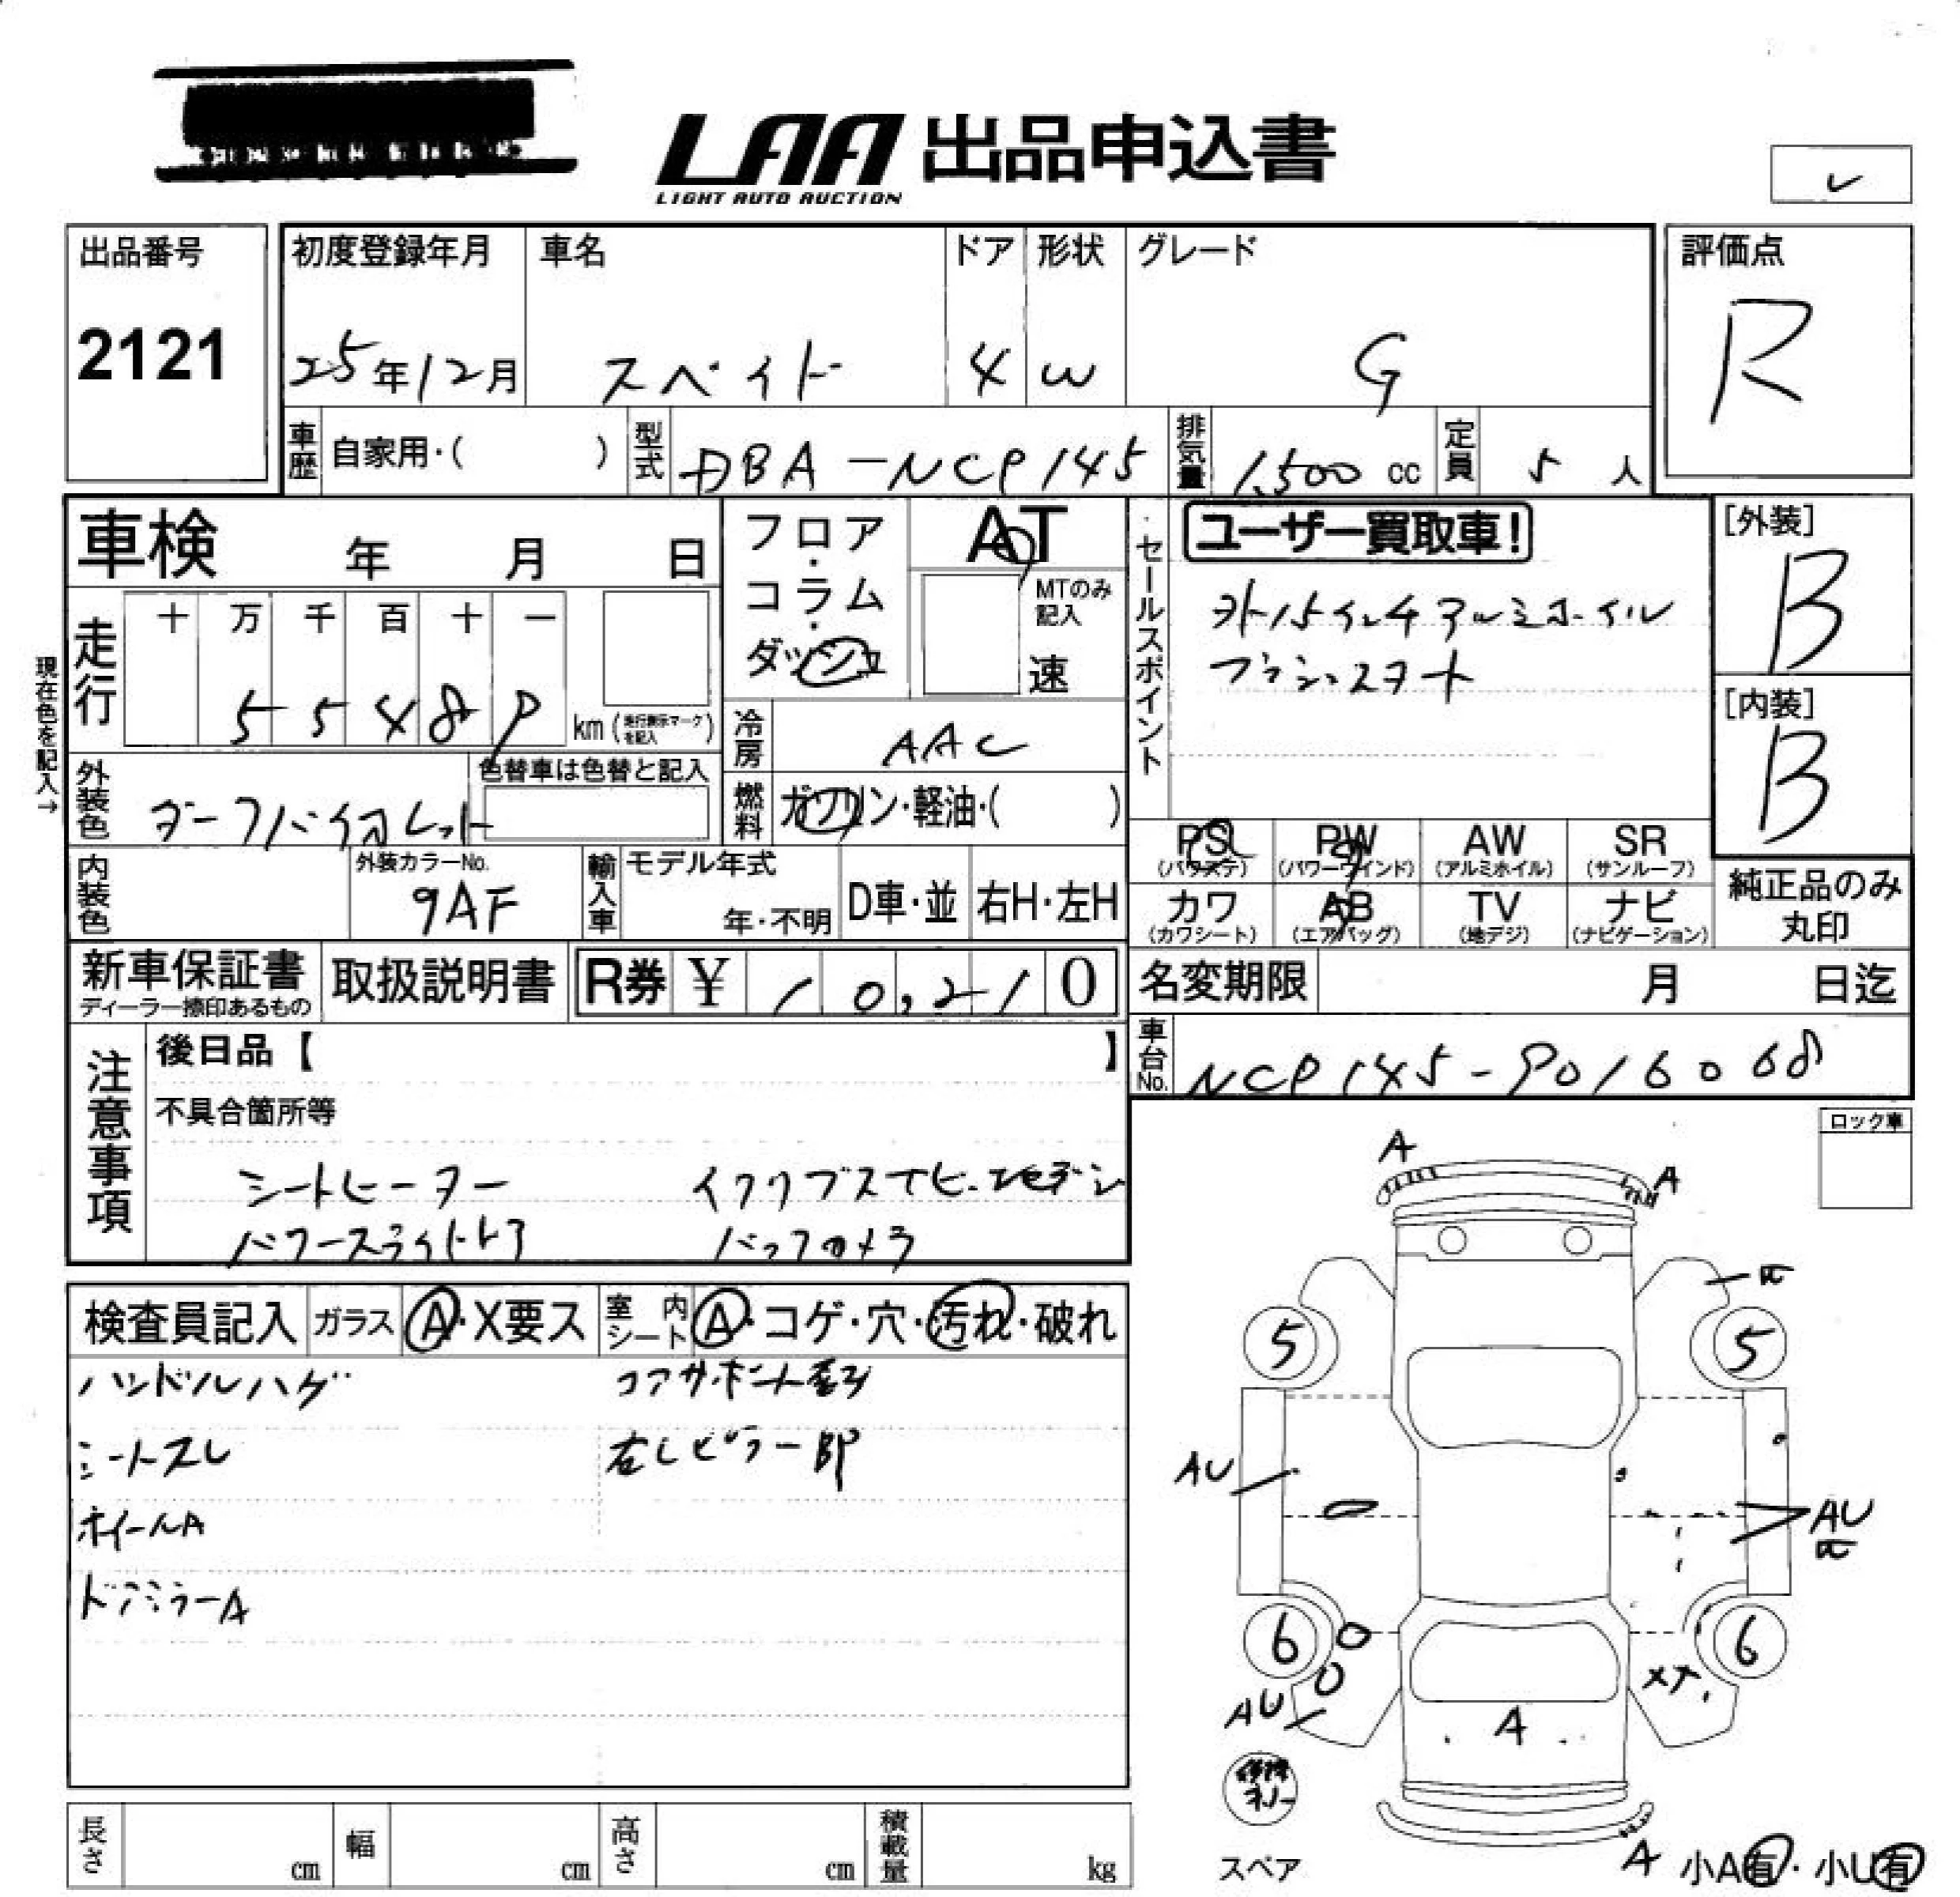 LAA 出品申込書
LIGHT AUTO AUCTION
出品番号
2121
初度登録年月
25年12月
車名
スペイド
ドア
4
形状
W
グレード
G
評価点
R
車歴 自家用・( )
型式 DBA-NCP145
排気量 1,500 cc
定員 5 人
車検 年 月 日
フロア・コラム・ダッシュ
AT
MTのみ記入
速
セールスポイント
ユーザー買取車!
外15インチアルミホイル
プッシュスタート
[外装]
B
[内装]
B
現在色を記入→
走行
十 万 千 百 十 一
5 5 4 8 9 km (走行表示マークを記入)
冷房 AAC
外装色
色替車は色替と記入
ダークバイオレット
燃料 ガソリン・軽油・( )
PS (パワステ)
PW (パワーウインド)
AW (アルミホイル)
SR (サンルーフ)
カワ (カワシート)
AB (エアバッグ)
TV (地デジ)
ナビ (ナビゲーション)
純正品のみ丸印
内装色
外装カラーNo.
9AF
輸入車
モデル年式
年・不明
D車・並
右H・左H
新車保証書
ディーラー捺印あるもの
取扱説明書
R券 ¥ 10,210
名変期限 月 日迄
車台No. NCP145-9016068
注意事項
後日品【 】
不具合箇所等
シートヒーター
イクリプスナビ・ワンセグ
パワースライドドア
バックカメラ
ロック車
検査員記入
ガラス A・X要ス
室内シート A・コゲ・穴・汚れ・破れ
ハンドルハゲ
コアサポート歪み
シートスレ
右Cピラー部
ホイールA
ドアミラーA
A
A
5
5
AU
AU
6
6
AU
XT
A
修理キット
スペア
A
小A有・小U有
長さ cm
幅 cm
高さ cm
積載量 kg